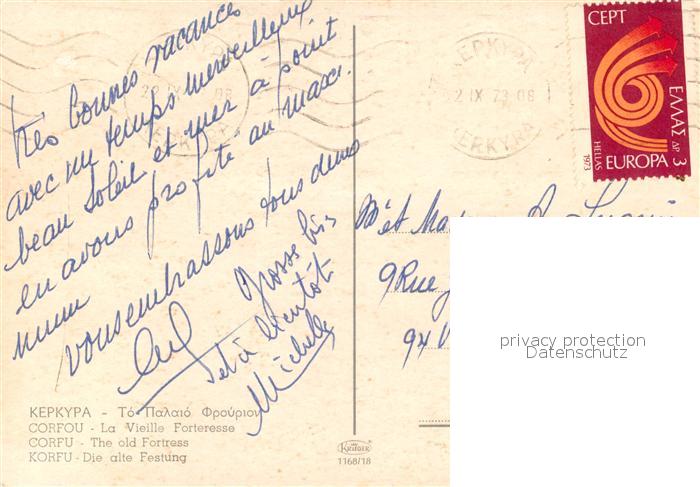 Très bonnes vacances
avec un temps merveilleux
beau soleil et mer à point
en avons profité au maxi.
vous embrassons tous deux
Grosses bis
et à bientôt
Michelle
ΚΕΡΚΥΡΑ - Τό Παλαιό Φρούριον
CORFOU - La Vieille Forteresse
CORFU - The old Fortress
KORFU - Die alte Festung
KRÜGER
1168/18
ΚΕΡΚΥΡΑ
22 IX 73 08
KERKYRA
CEPT
ΕΛΛΑΣ ΔΡ 3
HELLAS
EUROPA
1973
9 Rue
94 V
privacy protection
Datenschutz